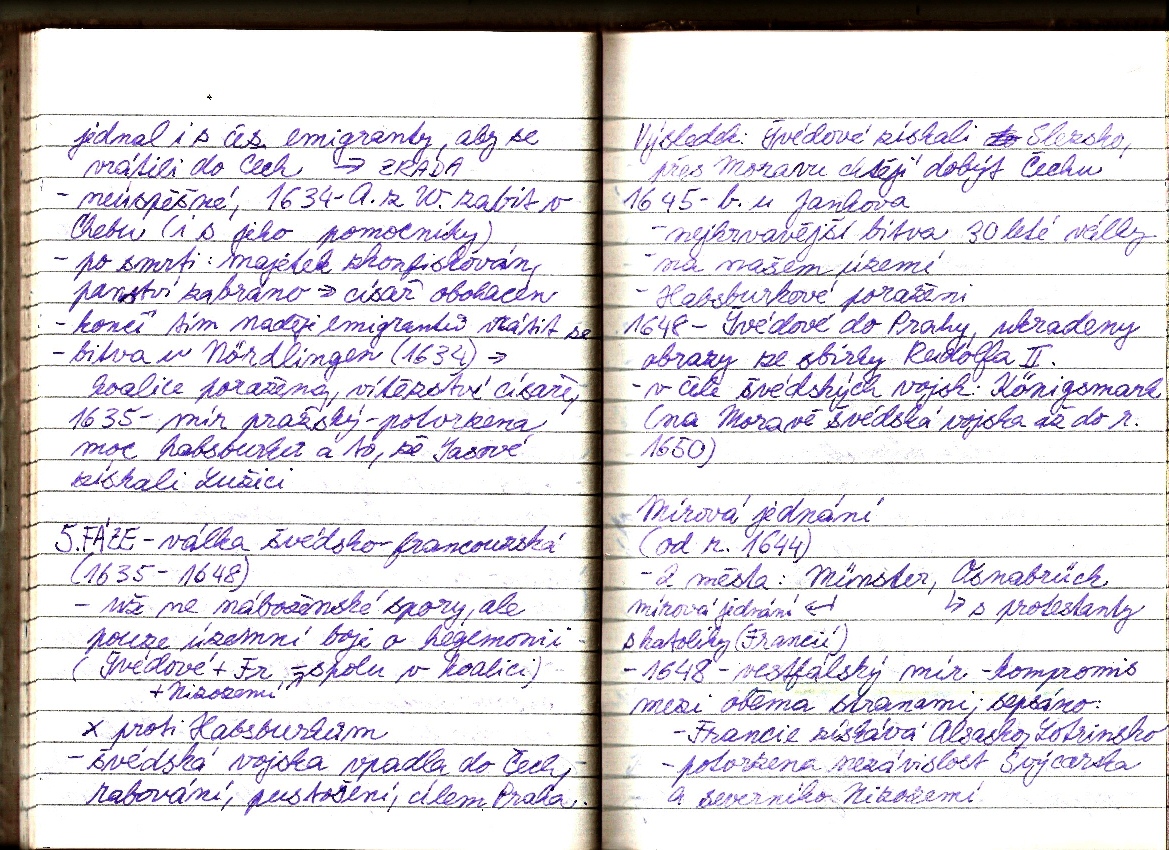 jednal i s čes. emigranty, aby se
vrátili do Čech → ZRADA
- neúspěšné, 1634 - A. z W. zabit v
Chebu (i s jeho pomocníky)
- po smrti: majetek zkonfiskován,
panství zabráno ⇒ císař obohacen
- končí tím naděje emigrantů vrátit se
- bitva u Nördlingen (1634) ⇒
koalice poražena, vítězství císaře,
1635 - mír pražský - potvrzena
moc habsburků a to, že Sasové
získali Lužici
5. FÁZE - válka švédsko-francouzská
(1635 - 1648)
- už ne náboženské spory, ale
pouze územní boje o hegemonii
(Švédové + Fr ⇒ spolu v koalici)
+ Nizozemí
x proti Habsburkům
- švédská vojska vpadla do Čech,
rabování, pustošení, cílem Praha.
Výsledek: Švédové získali Slezsko,
- přes Moravu chtějí dobýt Čechy
1645 - b. u Jankova
- nejkrvavější bitva 30 leté války
- na našem území
- Habsburkové poraženi
1648 - Švédové do Prahy, ukradeny
obrazy ze sbírky Rudolfa II.
- v čele švédských vojsk: Königsmark
(na Moravě švédská vojska až do r.
1650)
Mírová jednání
(od r. 1644)
- 2 města: Münster, Osnabrück
mírová jednání ↵ ↳ s protestanty
s katolíky (Francií)
- 1648 - vestfálský mír - kompromis
mezi oběma stranami; sepsáno:
- Francie získává Alsasko, Lotrinsko
- potvrzena nezávislost Švýcarska
a severního Nizozemí